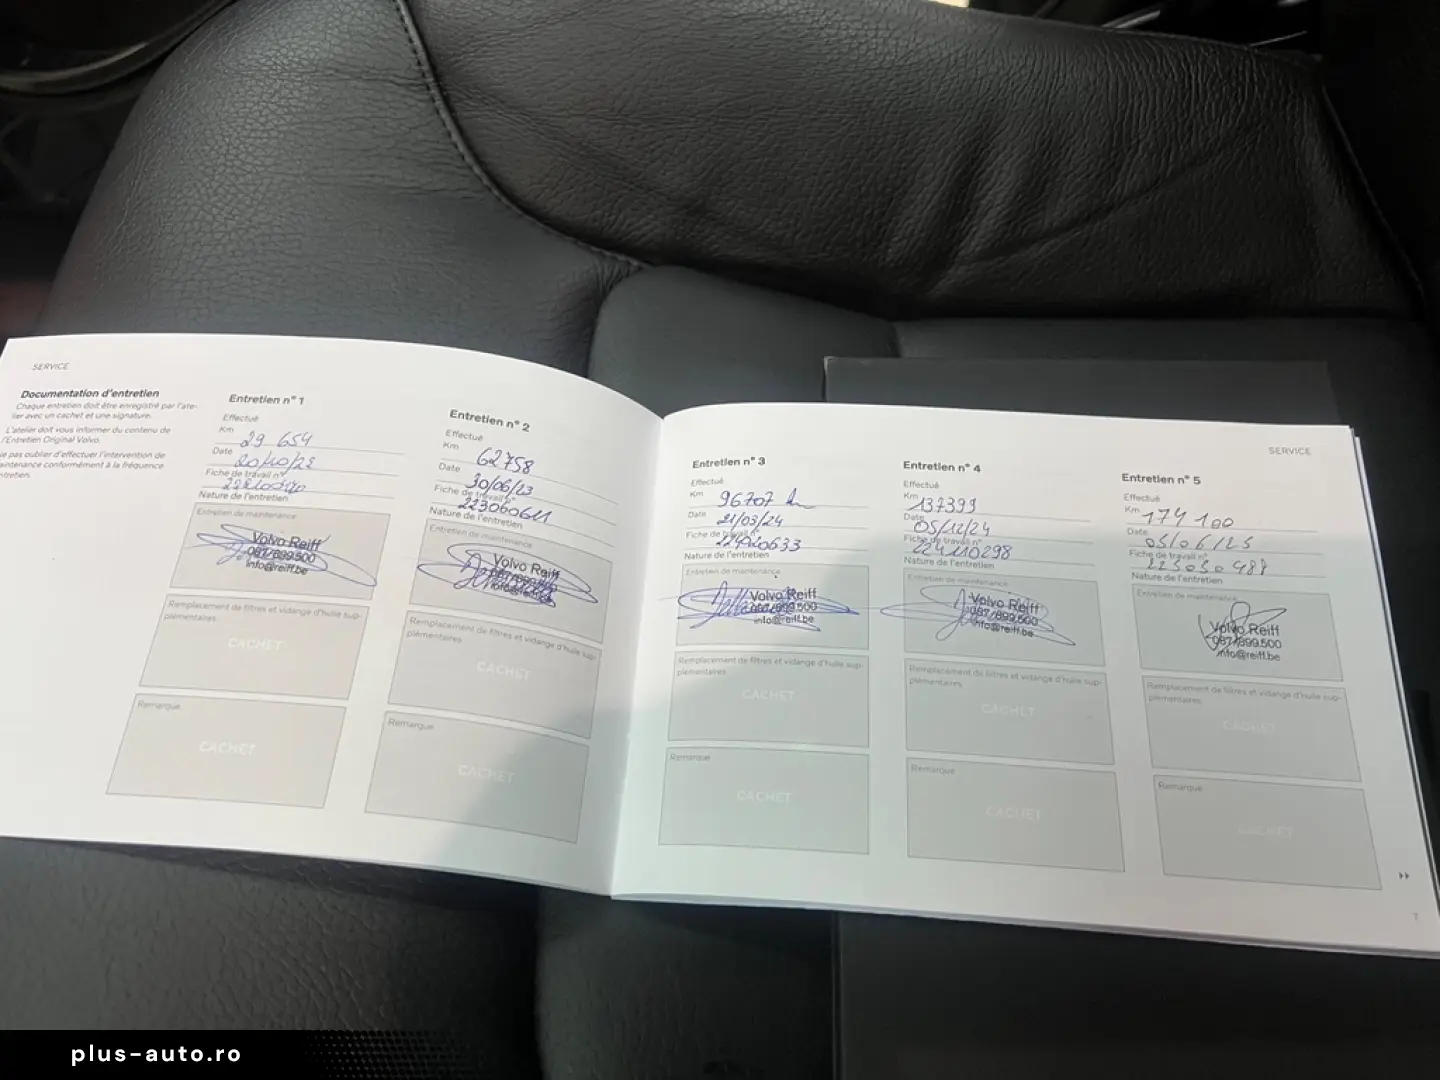 SERVICE
Documentation d'entretien
Chaque entretien doit être enregistré par l'ate-
lier avec un cachet et une signature.
L'atelier doit vous informer du contenu de
l'Entretien Original Volvo.
pas oublier d'effectuer l'intervention de
conformément à la fréquence
Entretien n° 1
Effectué
Km 29 654
Date 20/10/22
Fiche de travail n°
Nature de l'entretien
Entretien de maintenance
Volvo Reiff
087/899.500
info@reiff.be
Remplacement de filtres et vidange d'huile sup-
plémentaires
CACHET
Remarque
CACHET
Entretien n° 2
Effectué
Km 62758
Date 30/06/23
Fiche de travail n°
223060611
Nature de l'entretien
Entretien de maintenance
Volvo Reiff
087/899.500
info@reiff.be
Remplacement de filtres et vidange d'huile sup-
plémentaires
CACHET
Remarque
CACHET
SERVICE
Entretien n° 3
Effectué
Km 96707 km
Date 21/03/24
Fiche de travail n°
224020633
Nature de l'entretien
Entretien de maintenance
Volvo Reiff
087/899.500
info@reiff.be
Remplacement de filtres et vidange d'huile sup-
plémentaires
CACHET
Remarque
CACHET
Entretien n° 4
Effectué
Km 137399
Date 05/12/24
Fiche de travail n°
224110298
Nature de l'entretien
Entretien de maintenance
Volvo Reiff
087/899.500
info@reiff.be
Remplacement de filtres et vidange d'huile sup-
plémentaires
CACHET
Remarque
CACHET
Entretien n° 5
Effectué
Km 174 100
Date 05/06/25
Fiche de travail n°
225050488
Nature de l'entretien
Entretien de maintenance
Volvo Reiff
087/899.500
info@reiff.be
Remplacement de filtres et vidange d'huile sup-
plémentaires
CACHET
Remarque
CACHET
7
plus-auto.ro